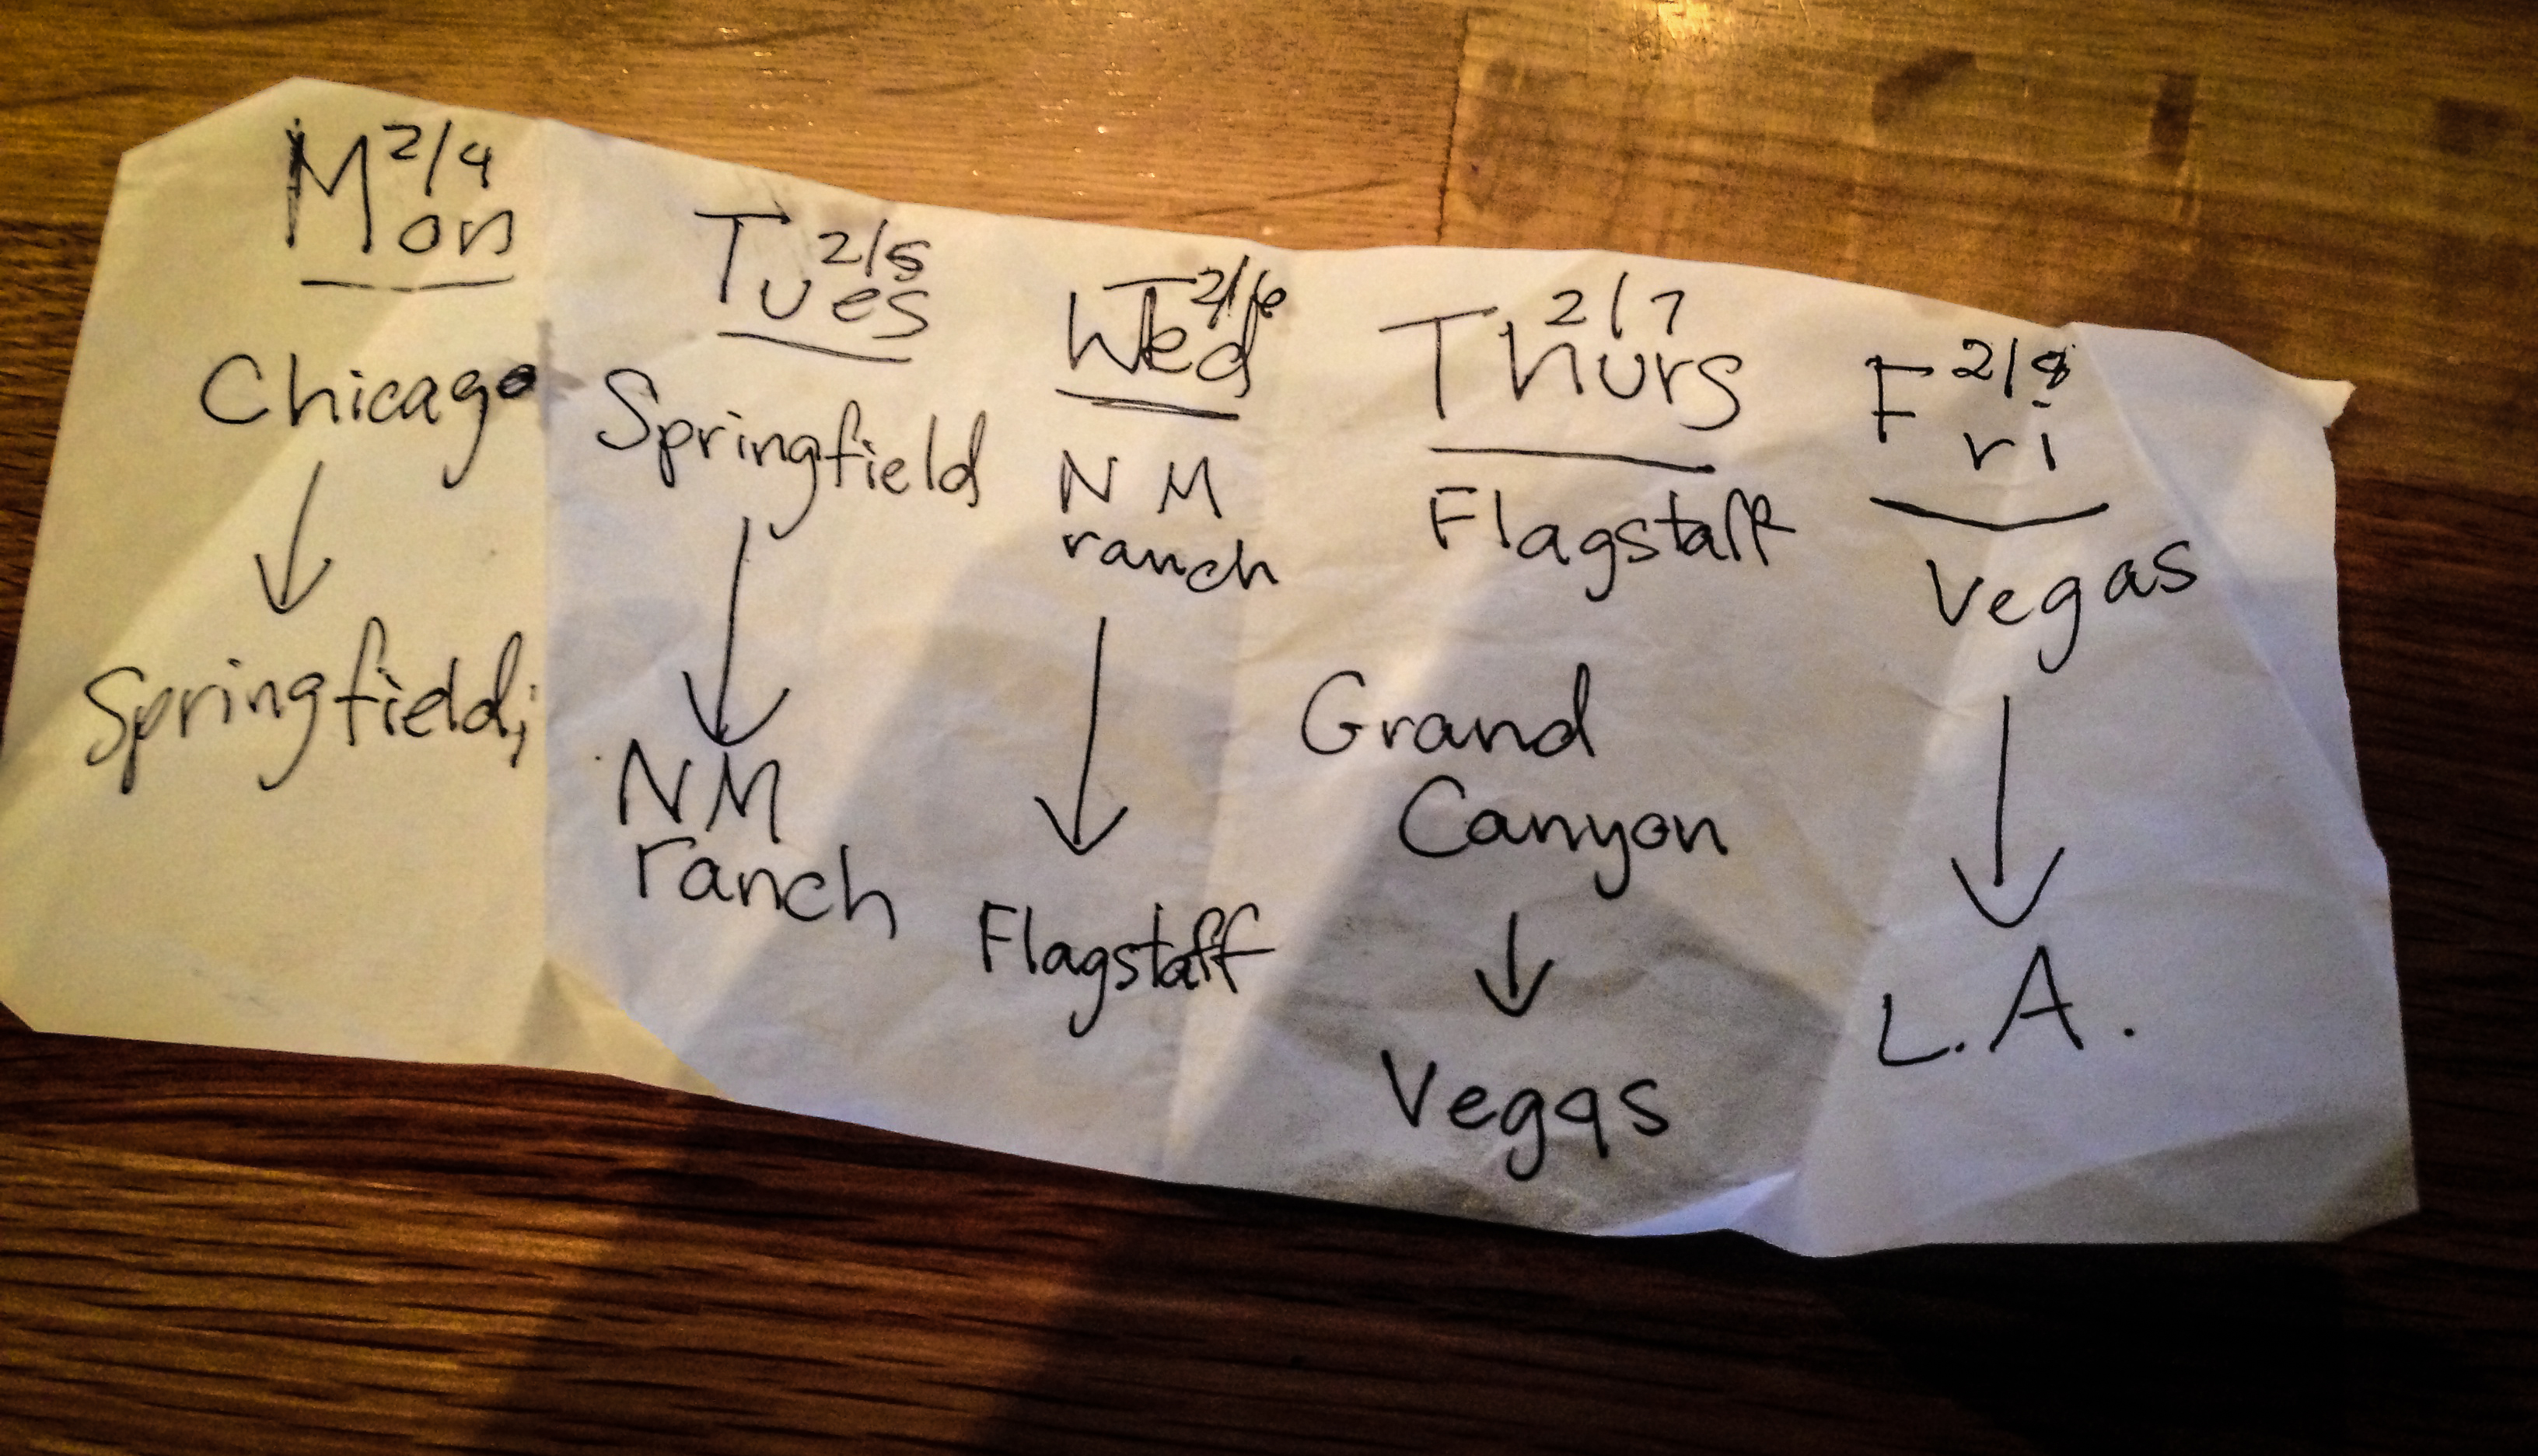 Mon 2/4
Chicago
↓
Springfield;
Tues 2/5
Springfield
↓
NM
ranch
Wed 2/6
NM
ranch
↓
Flagstaff
Thurs 2/7
Flagstaff
Grand
Canyon
↓
Vegas
Fri 2/8
Vegas
↓
L.A.